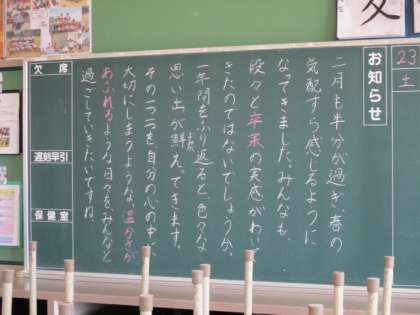 23
土
お知らせ
二月も半分が過ぎ、春の
気配すら感じるように
なってきました。みんなも、
段々と卒業の実感がわいて
きたのではないでしょうか。
一年間をふり返ると色々な
思い出が鮮えてきます。
その一つ一つを、自分の心の中で、
大切にしまうような、温かさが
あふれるような日々をみんなと
過ごしていきたいですね。
欠席
遅刻早引
保健室